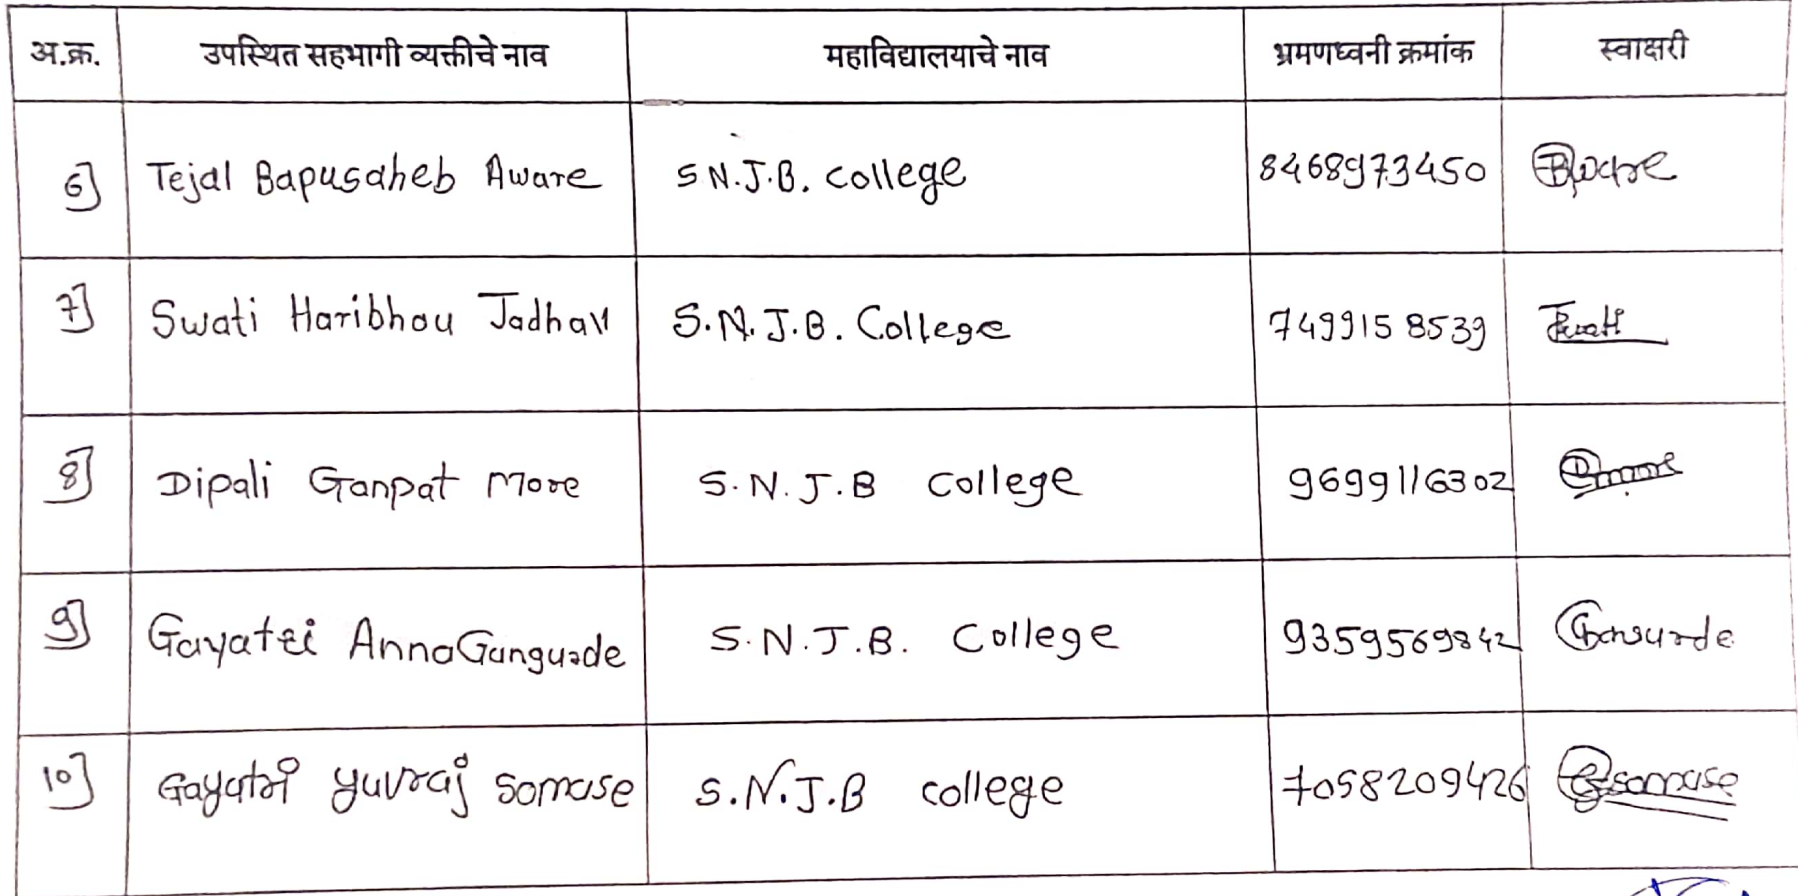 अ.क्र. उपस्थित सहभागी व्यक्तीचे नाव महाविद्यालयाचे नाव भ्रमणध्वनी क्रमांक स्वाक्षरी
6] Tejal Bapusaheb Aware S N.J.B. College 8468973450
7] Swati Haribhau Jadhav S.N.J.B. College 7499158539 Swati
8] Dipali Ganpat More S.N.J.B College 9699116302 Dmore
9] Gayatri Anna Gangurde S.N.J.B. College 9359569842 Gangurde
10] Gayatri yuvraj Somase S.N.J.B college 7058209426 Gsomase